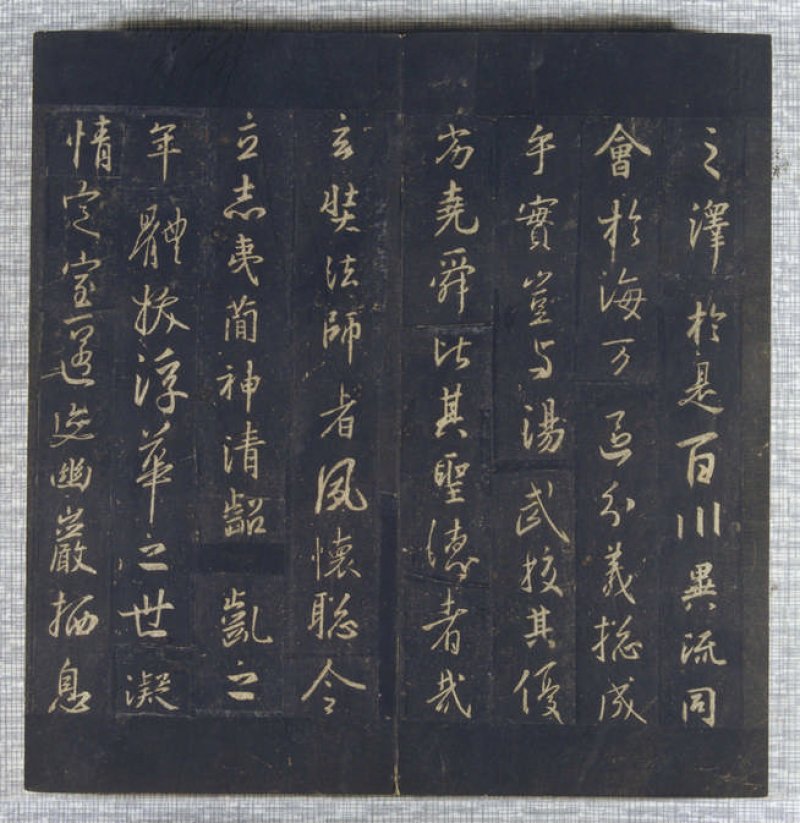 之澤於是百川異流同
會於海万區分義捴成
乎實豈与湯武挍其優
劣堯舜比其聖德者哉
玄奘法師者夙懷聡令
立志夷蕳神清齠齓之
年體拔浮華之世凝
情定室匿迹幽巖栖息